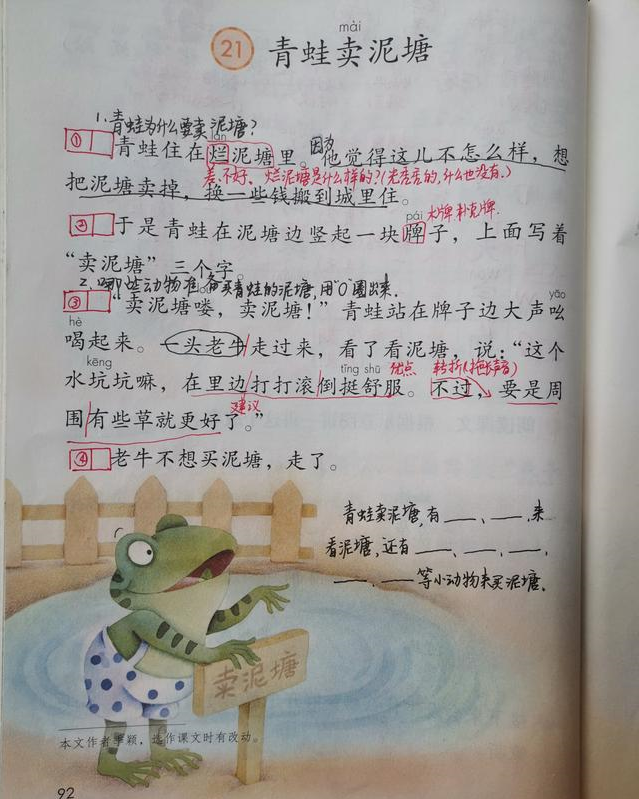 mài
21 青蛙卖泥塘
1.青蛙为什么要卖泥塘?
① làn 因为
青蛙住在烂泥塘里。他觉得这儿不怎么样,想
差、不好、烂泥塘是什么样的?(光秃秃的,什么也没有。)
把泥塘卖掉,换一些钱搬到城里住。
pái 木牌 扑克牌
② 于是青蛙在泥塘边竖起一块牌子,上面写着
“卖泥塘”三个字。
2.哪些动物准备买青蛙的泥塘,用“O”圈出来.
③ “卖泥塘喽,卖泥塘!”青蛙站在牌子边大声吆
yāo
hè
喝起来。一头老牛走过来,看了看泥塘,说:“这个
kēng tǐng shū 优点 转折
水坑坑嘛,在里边打打滚倒挺舒服。不过,要是周
建议
围有些草就更好了。”
④ 老牛不想买泥塘,走了。
青蛙卖泥塘,有____、____来
看泥塘,还有____、____、____、
____、____等小动物来买泥塘.
卖泥塘
本文作者李颖,选作课文时有改动。
92